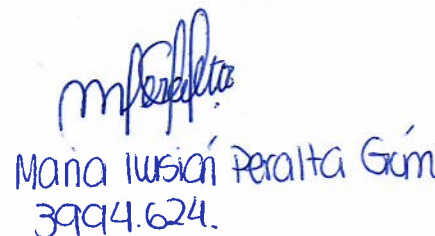 Maria Ilusión Peralta Gim
3994.624.